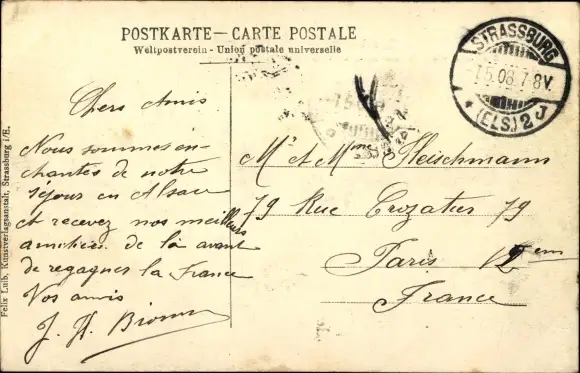 POSTKARTE — CARTE POSTALE
Weltpostverein - Union postale universelle
STRASSBURG
7.5.08. 7-8V.
* (ELS.) 2 J
Chers Amis
Nous sommes en-
chantés de notre
séjour en Alsace
et recevez nos meilleurs
amitiées de là avant
de regagner la France
Vos amis
J. H.
Mr et Mme Fleischmann
79 Rue Crozatier 79
Paris 12em
France
Felix Luib, Kunstverlagsanstalt, Strassburg i/E.